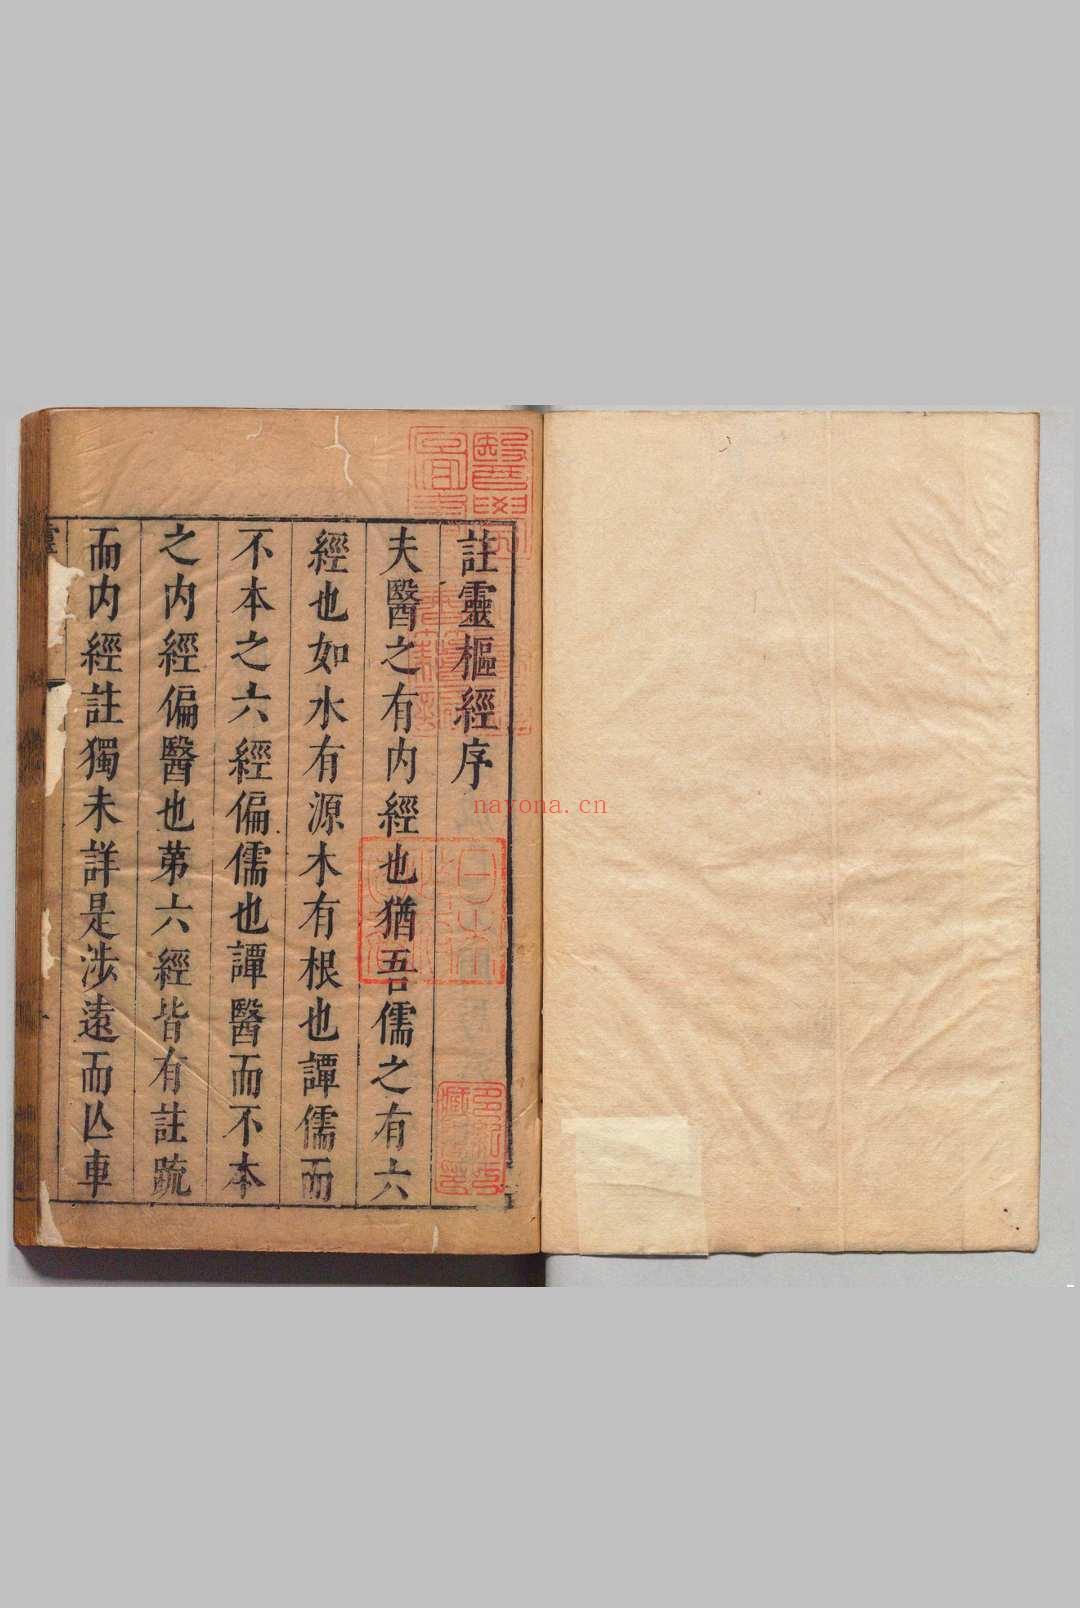 註靈樞經序
夫醫之有内經也猶吾儒之有六
經也如水有源木有根也譚儒而
不本之六經偏儒也譚醫而不本
之内經偏醫也苐六經皆有註䟽
而内經註獨未詳是涉遠而亾車
nayona.cn